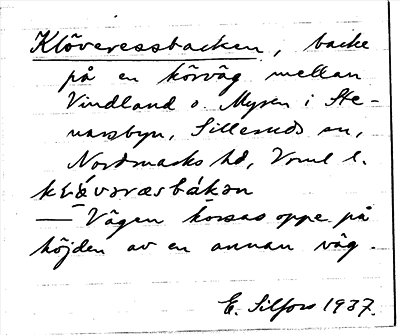 Klöveressbacken, backe
på en körväg mellan
Vindland o. Myren i Ste-
narsbyn, Silleruds sn,
Nordmarks hd, Vrml l.
— Vägen korsas oppe på
höjden av en annan väg.
E. Silfors 1937.